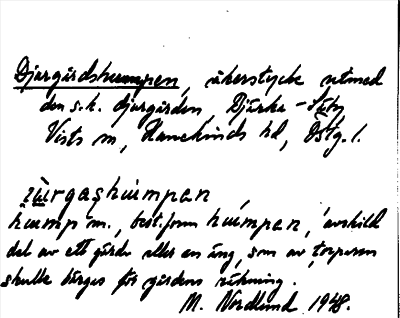 Djurgårdshumpen, åkerstycke utmed
den s.k. djurgården, Bjärka-Säby
Vists sn, Hanekinds hd, Östg. l.
humpm., best. form húmpen, 'avskild
del av ett gärde eller en äng, som av torparen
skulle bärgas för gårdens räkning.
M. Nordlund 1948.